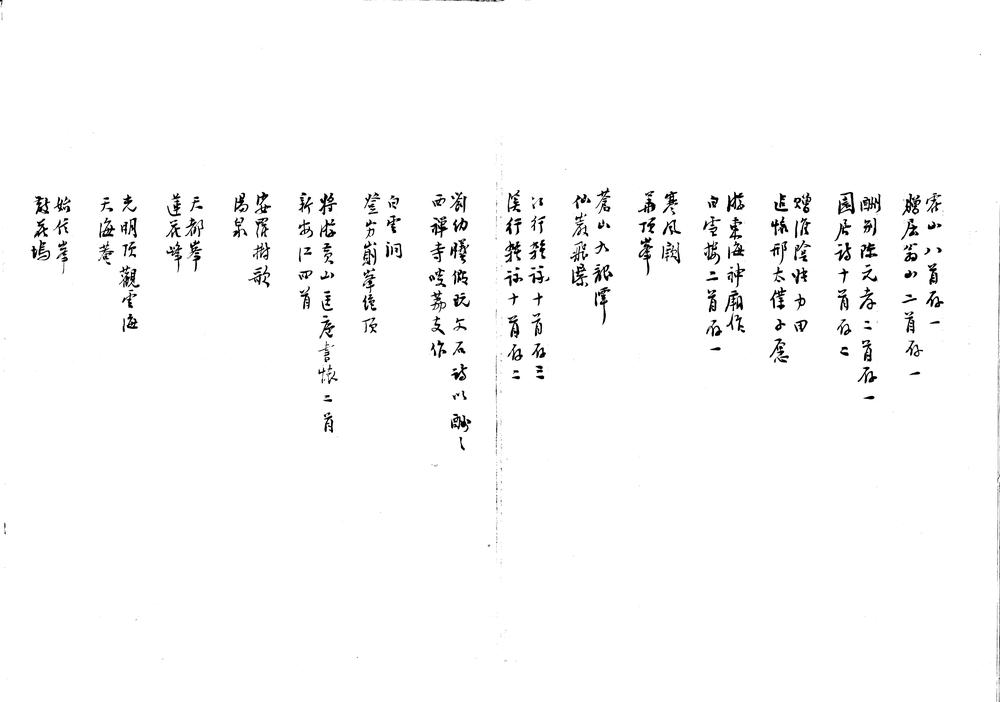 霍山八首存一
贈屈翁山二首存一
酬別陳元孝二首存一
園居詩十首存二
贈淮陰張力田
追懷邢太僕子愿
游東海神廟作
白雪樓二首存一
寒風闕
華頂峯
蒼山九龍潭
仙巖飛梁
江行雜詠十首存三
溪行雜詠十首存二
劉幼玩文石詩以酬之
西禪寺啖荔支作
白雲洞
登屴崱峯絕頂
將游黃山匡廬書懷二首
新安江四首
娑羅樹歌
湯泉
天都峯
蓮花峰
光明頂觀雲海
天海菴
始信峯
散花塢